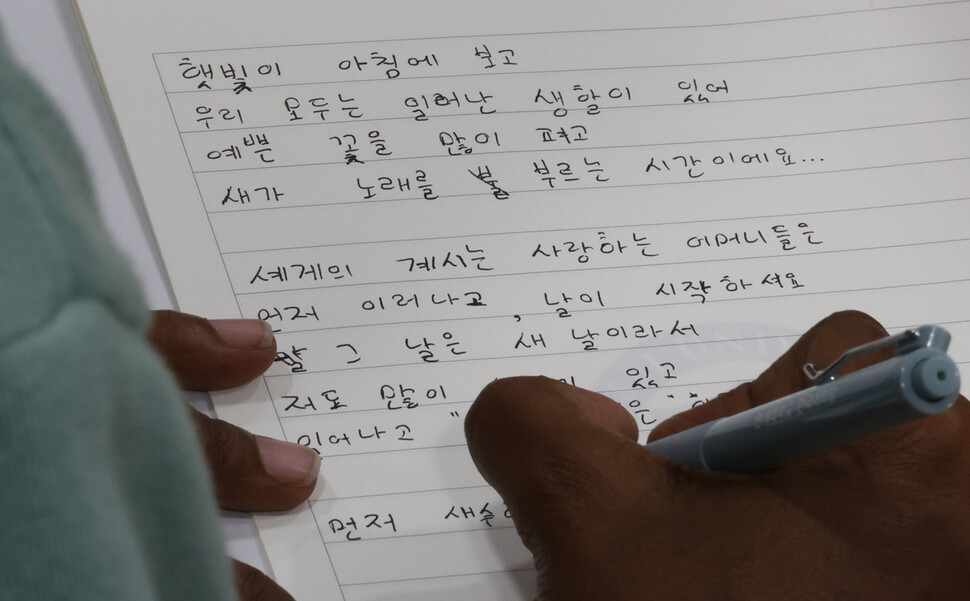 햇빛이 아침에 보고
우리 모두는 일어난 생할이 있어
예쁜 꽃을 많이 펴고
새가 노래를 부르는 시간이에요...
세계의 계시는 사랑하는 어머니들은
먼저 이러나고, 날이 시작하셔요
그 날은 새 날이라서
저도 많이 있고
일어나고 "
먼저 새수